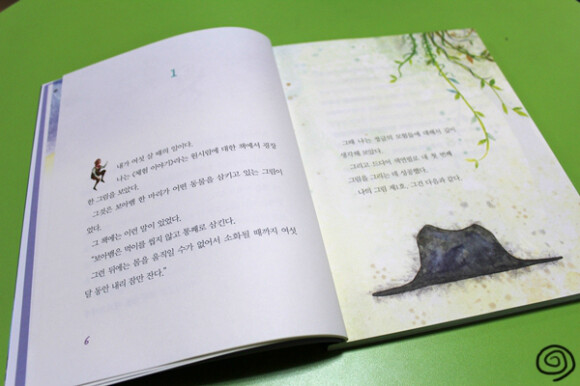 1
내가 여섯 살 때의 일이다.
나는 《체험 이야기》라는 원시림에 대한 책에서 굉장
한 그림을 보았다.
그것은 보아뱀 한 마리가 어떤 동물을 삼키고 있는 그림이
었다.
그 책에는 이런 말이 있었다.
"보아뱀은 먹이를 씹지 않고 통째로 삼킨다.
그런 뒤에는 몸을 움직일 수가 없어서 소화될 때까지 여섯
달 동안 내리 잠만 잔다."
6
그래 나는 정글의 모험들에 대해서 깊이
생각해 보았다.
그리고 드디어 색연필로 내 첫 번째
그림을 그리는 데 성공했다.
나의 그림 제1호. 그건 다음과 같다.